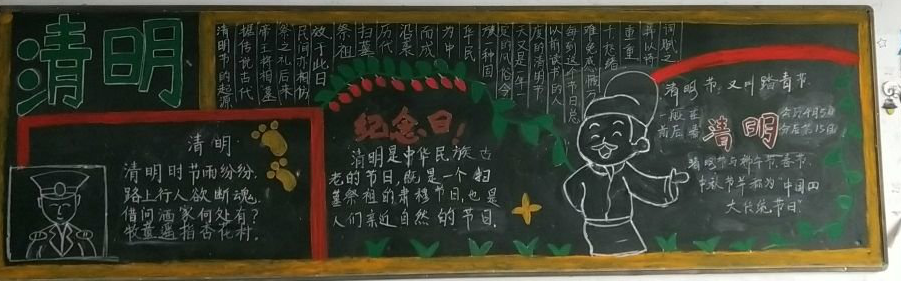 清明
清明
清明时节雨纷纷.
路上行人欲断魂.
借问酒家何处有?
牧童遥指杏花村.
清明节的起源
据传说古代
帝王将相墓
祭之礼后来
民间亦相仿
效于此日
祭祖
扫墓
历代
沿袭
而成
为中
华民
族一种固
定的风俗今
天又是一年一
度的清明节
以前读书的人
每到这个节日总
难免感慨
千愁绪
重重
纪念日!
清明是中华民族古
老的节日,既是一个扫
墓祭祖的肃穆节日,也是
人们亲近自然的节日.
清明节,又叫踏青节.
一般在
清明
公历4月5日
前后
清明节与端午节、春节、
中秋节并称为“中国四
大传统节日”